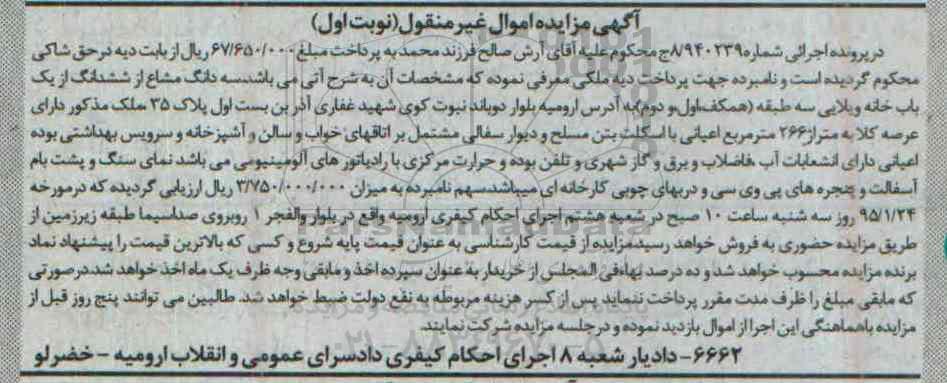 آگهی مزایده اموال غیر منقول (نوبت اول)
در پرونده اجرائی شماره ۸/۹۴۰۲۳۹ج محکوم علیه آقای آرش صالح فرزند محمد به پرداخت مبلغ ۶۷/۶۵۰/۰۰۰ ریال از بابت دیه در حق شاکی
محکوم گردیده است و نامبرده جهت پرداخت دیه ملکی معرفی نموده که مشخصات آن به شرح آتی می باشد.سه دانگ مشاع از ششدانگ از یک
باب خانه ویلایی سه طبقه (همکف،اول،و دوم)به آدرس ارومیه بلوار دوباند نبوت کوی شهید غفاری آذر بن بست اول پلاک ۳۵ ملک مذکور دارای
عرصه کلا به متراژ۲۶۶ مترمربع اعیانی با اسکلت بتن مسلح و دیوار سفالی مشتمل بر اتاقهای خواب و سالن و آشپزخانه و سرویس بهداشتی بوده
اعیانی دارای انشعابات آب ،فاضلاب و برق و گاز شهری و تلفن بوده و حرارت مرکزی با رادیاتور های آلومینیومی می باشد نمای سنگ و پشت بام
آسفالت و پنجره های پی وی سی و دربهای چوبی کارخانه ای میباشد.سهم نامبرده به میزان ۳/۷۵۰/۰۰۰/۰۰۰ ریال ارزیابی گردیده که در مورخه
۹۵/۱/۲۴ روز سه شنبه ساعت ۱۰ صبح در شعبه هشتم اجرای احکام کیفری ارومیه واقع در بلوار والفجر ۱ روبروی صداسیما طبقه زیرزمین از
طریق مزایده حضوری به فروش خواهد رسید.مزایده از قیمت کارشناسی به عنوان قیمت پایه شروع و کسی که بالاترین قیمت را پیشنهاد نماد
برنده مزایده محسوب خواهد شد و ده درصد بهاء،فی المجلس از خریدار به عنوان سپرده اخذ و مابقی وجه ظرف یک ماه اخذ خواهد شد.در صورتی
که مابقی مبلغ را ظرف مدت مقرر پرداخت ننماید پس از کسر هزینه مربوطه به نفع دولت ضبط خواهد شد. طالبین می توانند پنج روز قبل از
مزایده باهماهنگی این اجرا از اموال بازدید نموده و در جلسه مزایده شرکت نمایند.
۶۶۶۲- دادیار شعبه ۸ اجرای احکام کیفری دادسرای عمومی و انقلاب ارومیه - خضرلو
ParsNamadData
۰۲۱-۸۸۳۴۹۶۷۰-۵